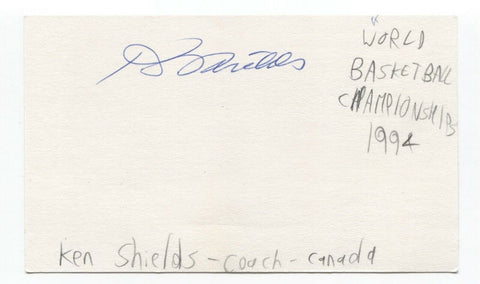 WORLD
BASKETBALL
CHAMPIONSHIPS
1994
Ken Shields - coach - canada